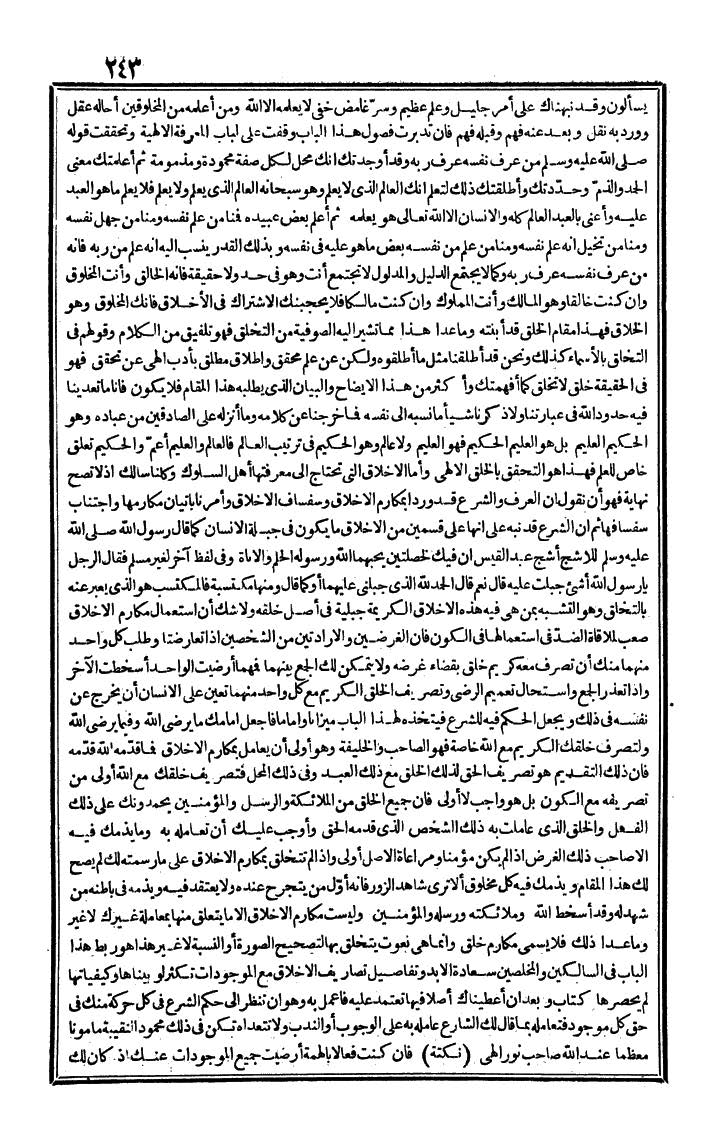 ٢٤٣
يسألون وقد نبهناك على أمر جليل وعلم عظيم وسر غامض خفي لا يعلمه الا الله ومن أعلمه من المخلوقين أحاله عقل
وورد به نقل وبعد عنه فهم وقبله فهم فان تدبرت فصول هذا الباب وقفت على لباب المعرفة الالهية وتحققت قوله
صلى الله عليه وسلم من عرف نفسه عرف ربه وقد أوجدتك انك محل لكل صفة محمودة ومذمومة ثم أعلمتك معنى
الحمد والذم وحددتك وأطلقتك ذلك لتعلم انك العالم الذى لا يعلم وهو سبحانه العالم الذى يعلم ولا يعلم فلا يعلم ما هو العبد
عليه وأعنى بالعبد العالم كله والانسان الا الله تعالى هو يعلمه ثم أعلم بعض عبيده فمنا من علم نفسه ومنا من جهل نفسه
ومنا من تخيل انه علم نفسه ومنا من علم من نفسه بعض ما هو عليه فى نفسه وبذلك القدر ينسب اليه انه علم من ربه فانه
من عرف نفسه عرف ربه وكما لا يجتمع الدليل والمدلول لا تجتمع أنت وهو فى حد ولا حقيقة فانه الخالق وأنت المخلوق
وان كنت خالقا وهو المالك وأنت المملوك وان كنت مالكا فلا يحجبنك الاشتراك فى الأخلاق فانك المخلوق وهو
الخلاق فهذا مقام الخلق قد أبنته وما عدا هذا مما تشير اليه الصوفية من التخلق فهو تلفيق من الكلام وقولهم فى
التخلق بالأسماء كذلك ونحن قد أطلقنا مثل ما أطلقوه ولكن عن علم محقق واطلاق مطلق بأدب الهى عن تحقق فهو
فى الحقيقة خلق لا تخلق كما أفهمتك وأكثر من هذا الايضاح والبيان الذى يطلبه هذا المقام فلا يكون فانا ما تعدينا
فيه حدود الله فى عبارتنا ولا ذكرنا شيأ ما نسبه الى نفسه فما خرجنا عن كلامه وما أنزله على الصادقين من عباده وهو
الحكيم العليم بل هو العليم الحكيم فهو العليم ولا عالم وهو الحكيم فى ترتيب العالم فالعالم والعليم أعم والحكيم تعلق
خاص للعلم فهذا هو التحقق بالخلق الالهى وأما الاخلاق التى تحتاج الى معرفتها أهل السلوك وكلنا سالك اذ لا تصح
نهاية فهو أن نقول ان العرف والشرع قد وردا بمكارم الاخلاق وسفساف الاخلاق وأمرنا باتيان مكارمها واجتناب
سفسافها ثم ان الشرع قد نبه على انها على قسمين من الاخلاق ما يكون فى جبلة الانسان كما قال رسول الله صلى الله
عليه وسلم للاشج أشج عبد القيس ان فيك لخصلتين يحبهما الله ورسوله الحلم والاناة وفى لفظ آخر لغير مسلم فقال الرجل
يا رسول الله أشئ جبلت عليه قال نعم قال الحمد لله الذى جبلنى عليهما أو كما قال ومنها مكتسبة فالمكتسب هو الذى يعبر عنه
بالتخلق وهو التشبه بمن هى فيه هذه الاخلاق الكريمة جبلية فى أصل خلقه ولا شك أن استعمال مكارم الاخلاق
صعب لملاقاة الضد فى استعمالها فى الكون فان الغرضين والارادتين من الشخصين اذا تعارضتا وطلب كل واحد
منهما منك أن تصرف معه كريم خلق بقضاء غرضه ولا يتمكن لك الجمع بينهما فمهما أرضيت الواحد أسخطت الآخر
واذا تعذر الجمع واستحال تعميم الرضى وتصريف الخلق الكريم مع كل واحد منهما تعين على الانسان أن يخرج عن
نفسه فى ذلك ويجعل الحكم فيه للشرع فيتخذه لهذا الباب ميزانا واماما فاجعل امامك ما يرضى الله وفيما يرضى الله
ولتصرف خلقك الكريم مع الله خاصة فهو الصاحب والخليفة وهو أولى أن يعامل بمكارم الاخلاق فما قدمه الله قدمه
فان ذلك التقديم هو تصريف الحق لذلك الخلق مع ذلك العبد وفى ذلك المحل فتصريف خلقك مع الله أولى من
تصريفه مع الكون بل هو واجب لا أولى فان جميع الخلق من الملائكة والرسل والمؤمنين يحمدونك على ذلك
الفعل والخلق الذى عاملت به ذلك الشخص الذى قدمه الحق وأوجب عليك أن تعامله به وما يذمك فيه
الا صاحب ذلك الغرض اذ لم يكن مؤمنا ومراعاة الاصل أولى واذا لم تتخلق بمكارم الاخلاق على ما رسمته لك لم يصح
لك هذا المقام ويذمك فيه كل مخلوق ألا ترى شاهد الزور فانه أول من يتجرح عنده ولا يعتقد فيه ويذمه فى باطنه من
شهد له وقد أسخط الله وملائكته ورسله والمؤمنين وليست مكارم الاخلاق الا ما يتعلق منها بمعاملة غيرك لا غير
وما عدا ذلك فلا يسمى مكارم خلق وانما هى نعوت يتخلق بها لتصحيح الصورة أو النسبة لا غير هذا هو ربط هذا
الباب فى السالكين والمخلصين سعادة الابد وتفاصيل تصاريف الاخلاق مع الموجودات تكثر لو بيناها وكيفياتها
لم يحصرها كتاب وبعد أن أعطيناك أصلا فيها تعتمد عليه فاعمل به وهو ان تنظر الى حكم الشرع فى كل حركة منك فى
حق كل موجود فتعامله بما قال لك الشارع عامله به على الوجوب أو الندب ولا تتعداه تكن فى ذلك محمود النقيبة مأمونا
معظما عند الله صاحب نور الهى (نكتة) فان كنت فعالا بالهمة أرضيت جميع الموجودات عنك اذ كان لك